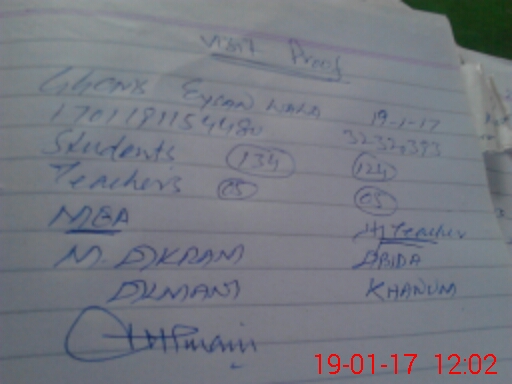 Visit Proof
GGCMS 19-1-17
1701191154480 32322393
Students 134 124
Teachers 05 05
MEA H/Teacher
M. AKRAM ABIDA
KHANUM
19-01-17 12:02